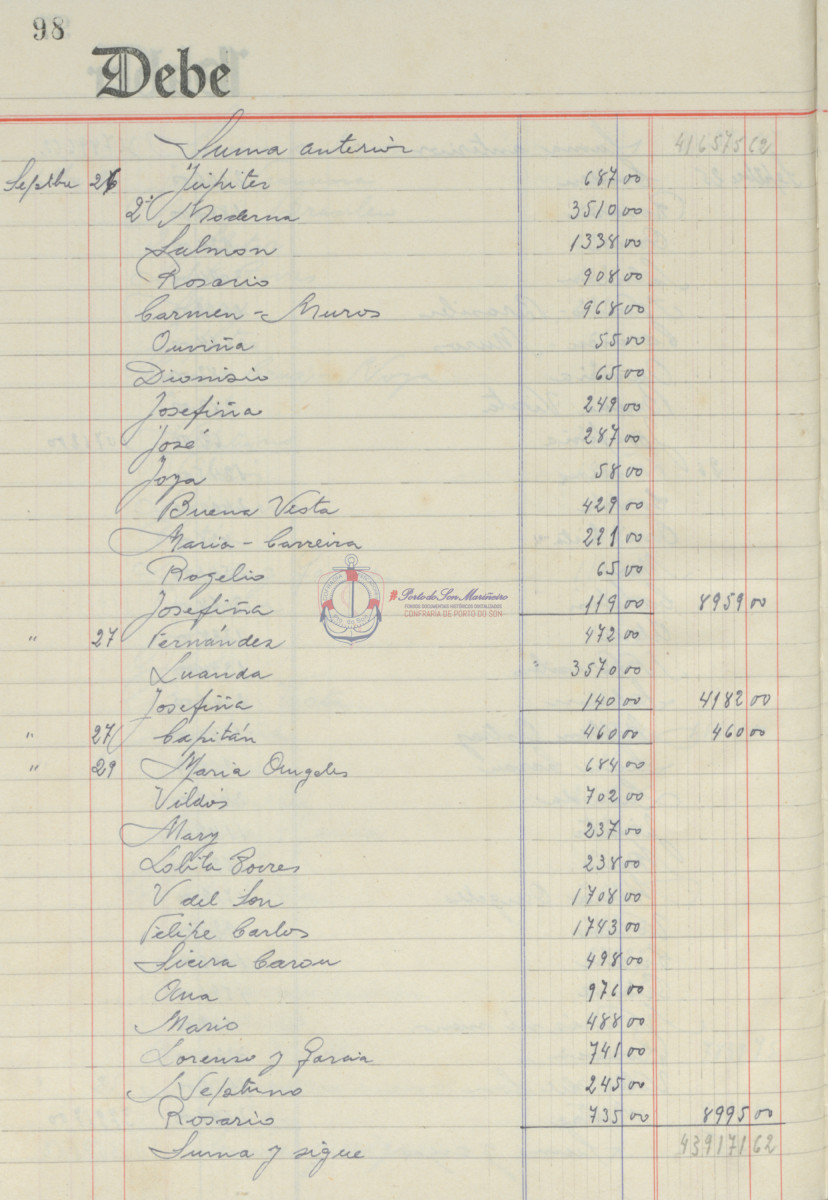 98
Debe
Suma anterior 416575 62
Septbre 26 Júpiter 687 00
2ª Moderna 3510 00
Salmon 1338 00
Rosario 908 00
Carmen = Muros 968 00
Ouviña 55 00
Dionisio 65 00
Josefiña 249 00
José 287 00
Joya 58 00
Buena Vista 429 00
Maria - Carreira 221 00
Rogelio 65 00
Josefiña 119 00 8959 00
" 27 Fernández 472 00
Luanda " 3570 00
Josefiña 140 00 4182 00
" 27 Capitán 460 00 460 00
" 29 Maria Angeles 684 00
Vildós 702 00
Mary 237 00
Lolita 238 00
V del Son 1708 00
Felipe Carlos 1743 00
498 00
Ana 976 00
Mario 488 00
Lorenzo y Garcia 741 00
Neptuno 245 00
Rosario 735 00 8995 00
Suma y sigue 439171 62
#PortodoSonMariñeiro
FONDOS DOCUMENTAIS HISTÓRICOS DIXITALIZADOS
CONFRARÍA DE PORTO DO SON